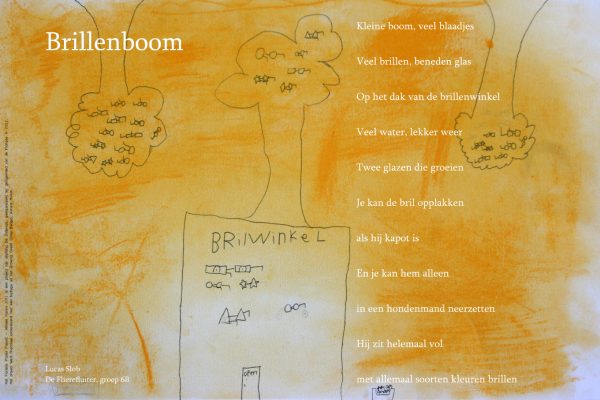 Brillenboom
Kleine boom, veel blaadjes
Veel brillen, beneden glas
Op het dak van de brillenwinkel
Veel water, lekker weer
Twee glazen die groeien
Je kan de bril opplakken
als hij kapot is
En je kan hem alleen
in een hondenmand neerzetten
Hij zit helemaal vol
met allemaal soorten kleuren brillen
BRilWiNKEL
Lucas Slob
De Flierefluiter, groep 6B